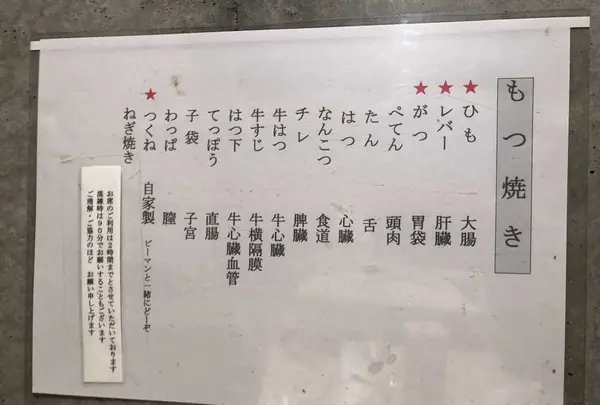 もつ焼き
★ひも 大腸
★レバー 肝臓
★がつ 胃袋
ぺてん 頭肉
たん 舌
はつ 心臓
なんこつ 食道
チレ 脾臓
牛はつ 牛心臓
牛すじ 牛横隔膜
はつ下 牛心臓血管
てっぽう 直腸
子袋 子宮
わっぱ 膣
★つくね 自家製 ピーマンと一緒にどーぞ
ねぎ焼き
お席のご利用は2時間までとさせていただいております
混雑時は90分でお願いすることもございます
ご理解・ご協力のほど お願い申し上げます